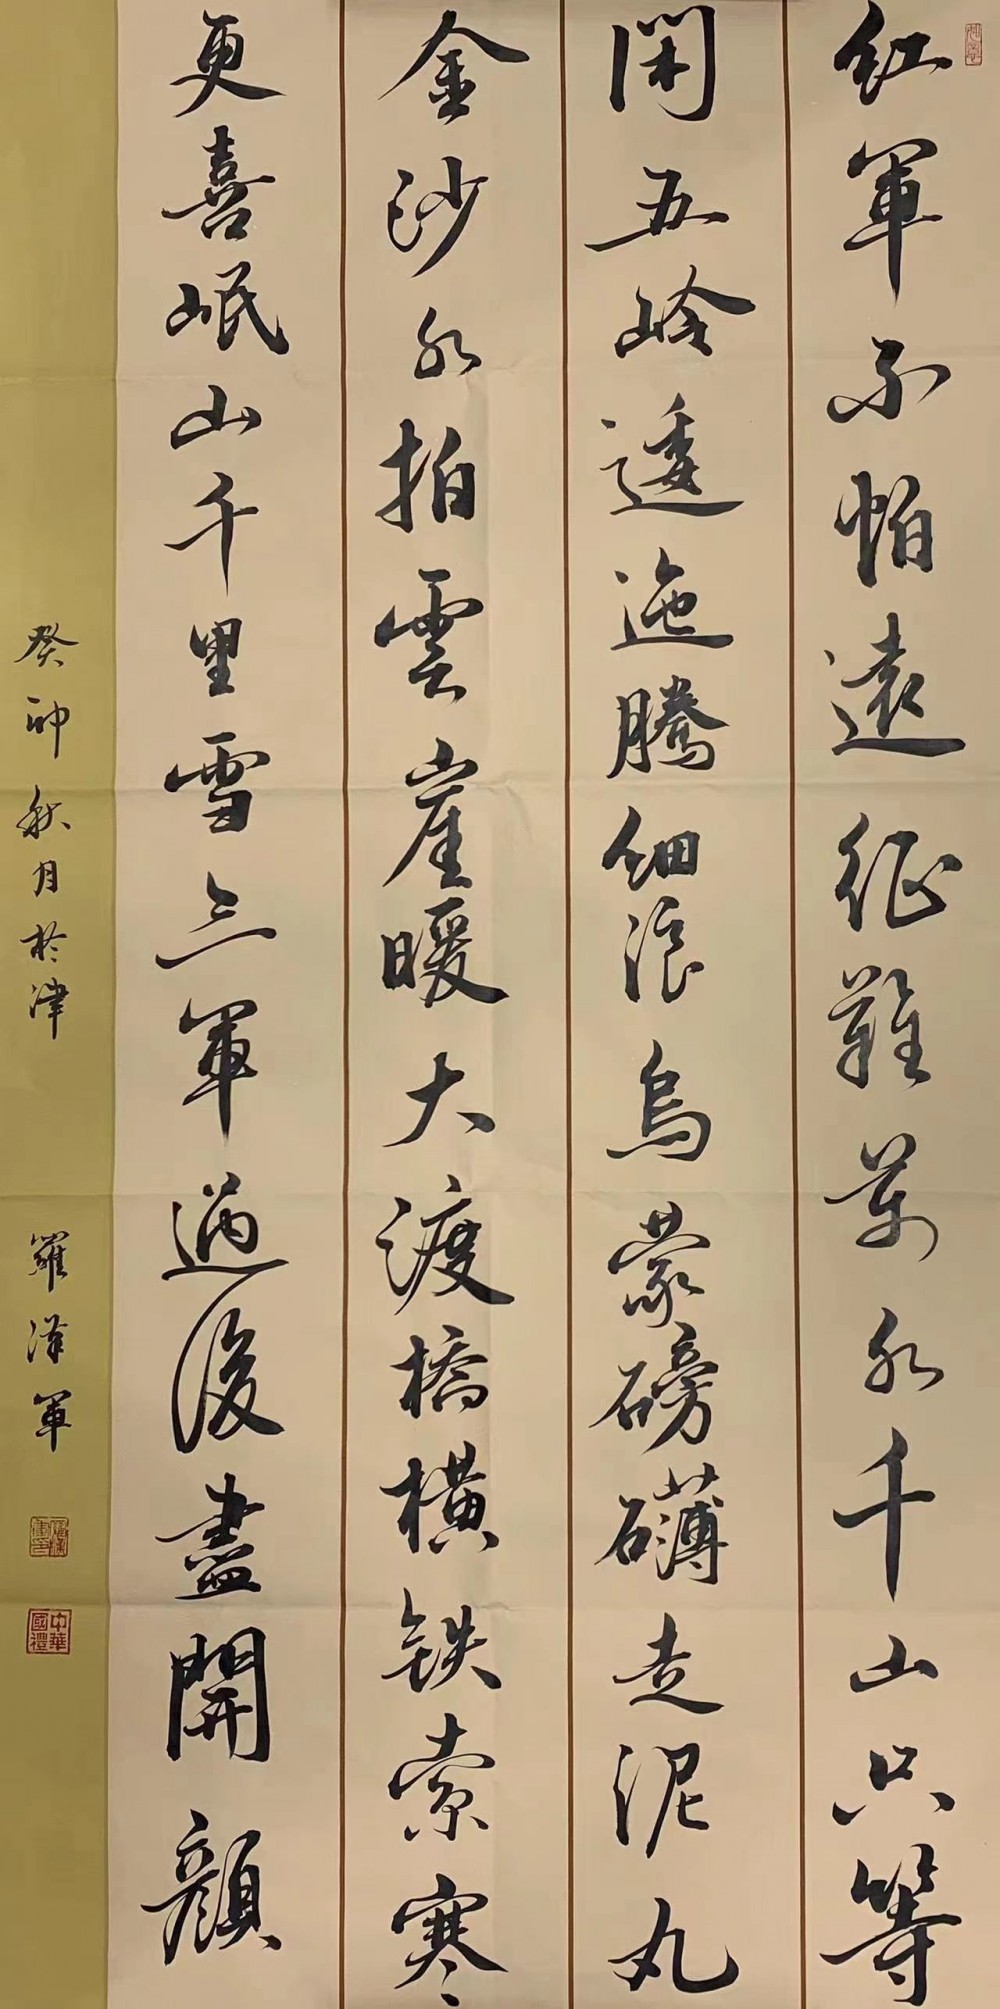 紅軍不怕遠征難萬水千山只等
閑五岭逶迤騰細浪烏蒙磅礴走泥丸
金沙水拍雲崖暖大渡橋橫铁索寒
更喜岷山千里雪三軍過後盡開顏
癸卯秋月於津 羅漢軍
中華國禮